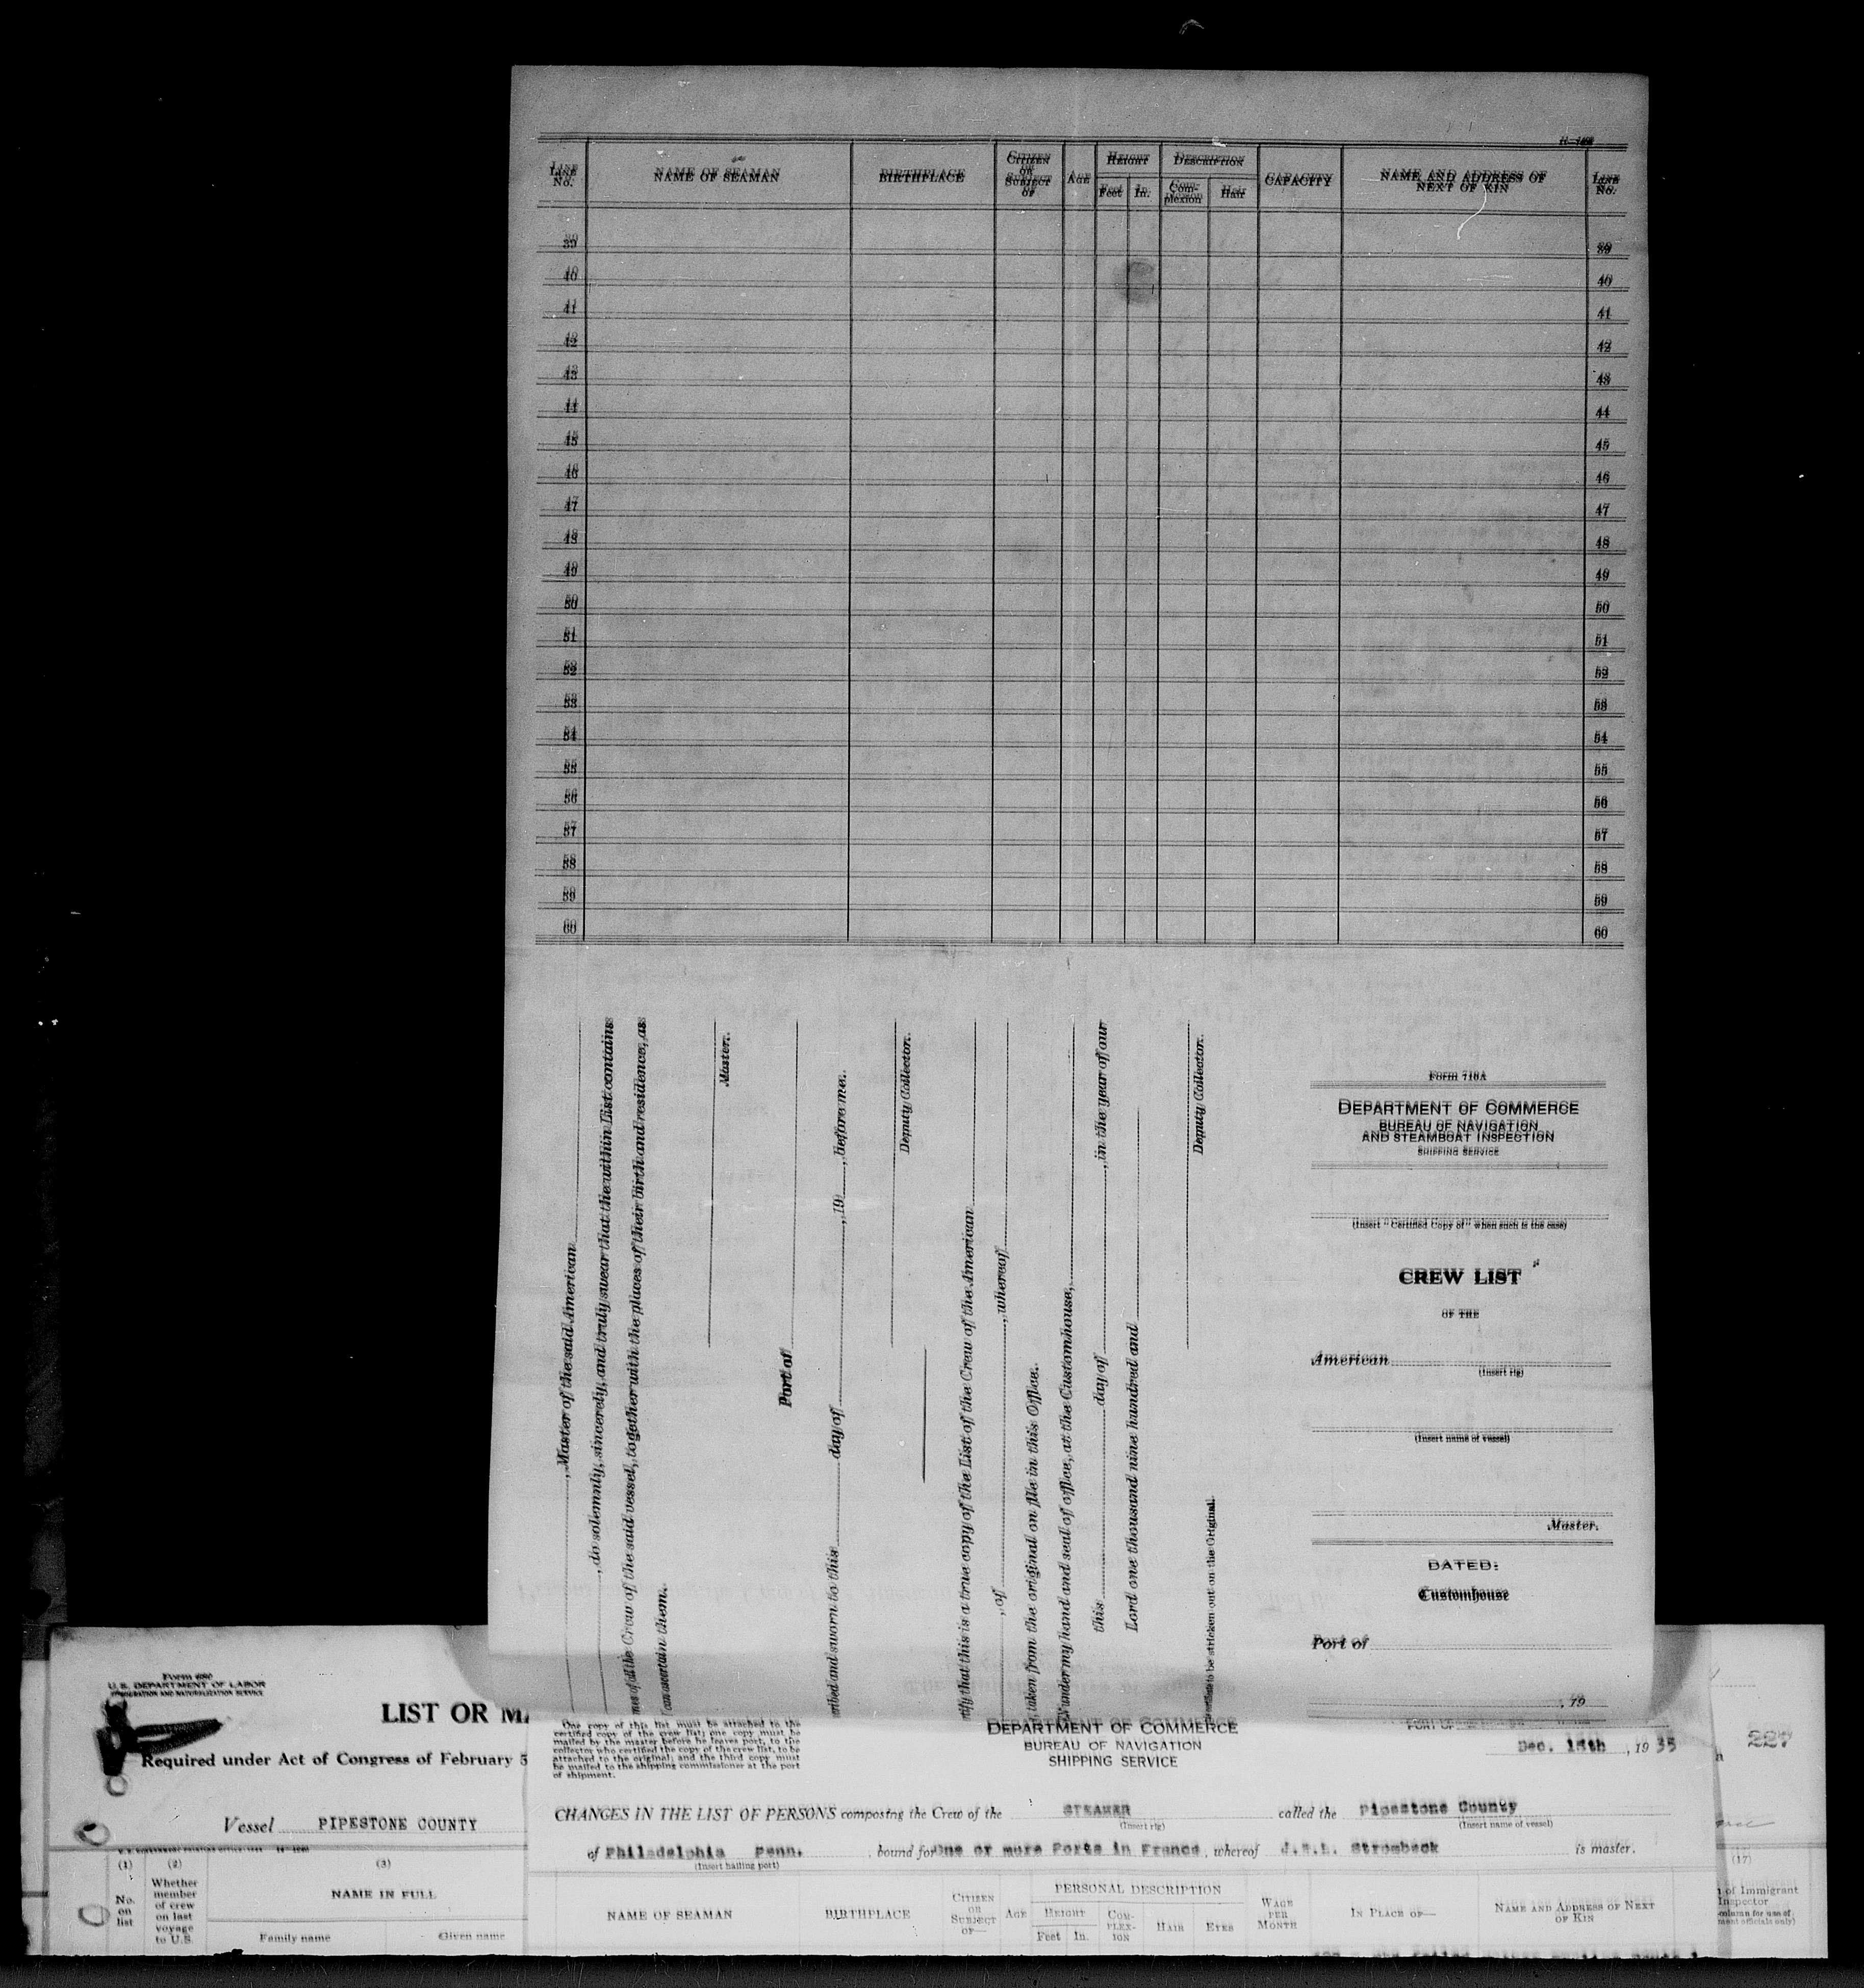 LINE No. NAME OF SEAMAN BIRTHPLACE CITIZEN OR SUBJECT OF AGE HEIGHT Feet In. DESCRIPTION Complexion Hair CAPACITY NAME AND ADDRESS OF NEXT OF KIN LINE No.
39 39
40 40
41 41
42 42
43 43
44 44
45 45
46 46
47 47
48 48
49 49
50 50
51 51
52 52
53 53
54 54
55 55
56 56
57 57
58 58
59 59
60 60
, Master of the said American
, do solemnly, sincerely, and truly swear that the within List contains
the Crew of the said vessel, together with the places of their birth and residence, as
can ascertain them.
Master.
Port of
and sworn to this day of , 19 , before me.
Deputy Collector.
that this is a true copy of the List of the Crew of the American
, of , whereof
taken from the original on file in this Office.
under my hand and seal of office, at the Customhouse,
this day of , in the year of our
Lord one thousand nine hundred and
Deputy Collector.
to be stricken out on the Original.
Form 710A
DEPARTMENT OF COMMERCE
BUREAU OF NAVIGATION
AND STEAMBOAT INSPECTION
SHIPPING SERVICE
(Insert "Certified Copy of" when such is the case)
CREW LIST
OF THE
American
(Insert rig)
(Insert name of vessel)
Master.
DATED:
Customhouse
Port of
, 19
Form 680
U. S. DEPARTMENT OF LABOR
IMMIGRATION AND NATURALIZATION SERVICE
LIST OR
Required under Act of Congress of February 5
Vessel PIPESTONE COUNTY
(1) (2) (3)
No. on list
Whether member of crew on last voyage to U.S.
NAME IN FULL
Family name Given name
One copy of this list must be attached to the
certified copy of the crew list; one copy must be
mailed by the master before he leaves port, to the
collector who certified the copy of the crew list, to be
attached to the original; and the third copy must
be mailed to the shipping commissioner at the port
of shipment.
DEPARTMENT OF COMMERCE
BUREAU OF NAVIGATION
SHIPPING SERVICE
PORT OF
Dec. , 1935
CHANGES IN THE LIST OF PERSONS composing the Crew of the STEAMER called the Pipestone County
(Insert rig) (Insert name of vessel)
of Philadelphia Penn. , bound for One or more Ports in France, whereof J.E.L. Strombeck is master.
(Insert hailing port)
NAME OF SEAMAN BIRTHPLACE CITIZEN OR SUBJECT OF— AGE PERSONAL DESCRIPTION HEIGHT Feet In. COMPLEXION HAIR EYES WAGE PER MONTH IN PLACE OF— NAME AND ADDRESS OF NEXT OF KIN
227
(17)
of Immigrant
Inspector
column for use of
officials only)